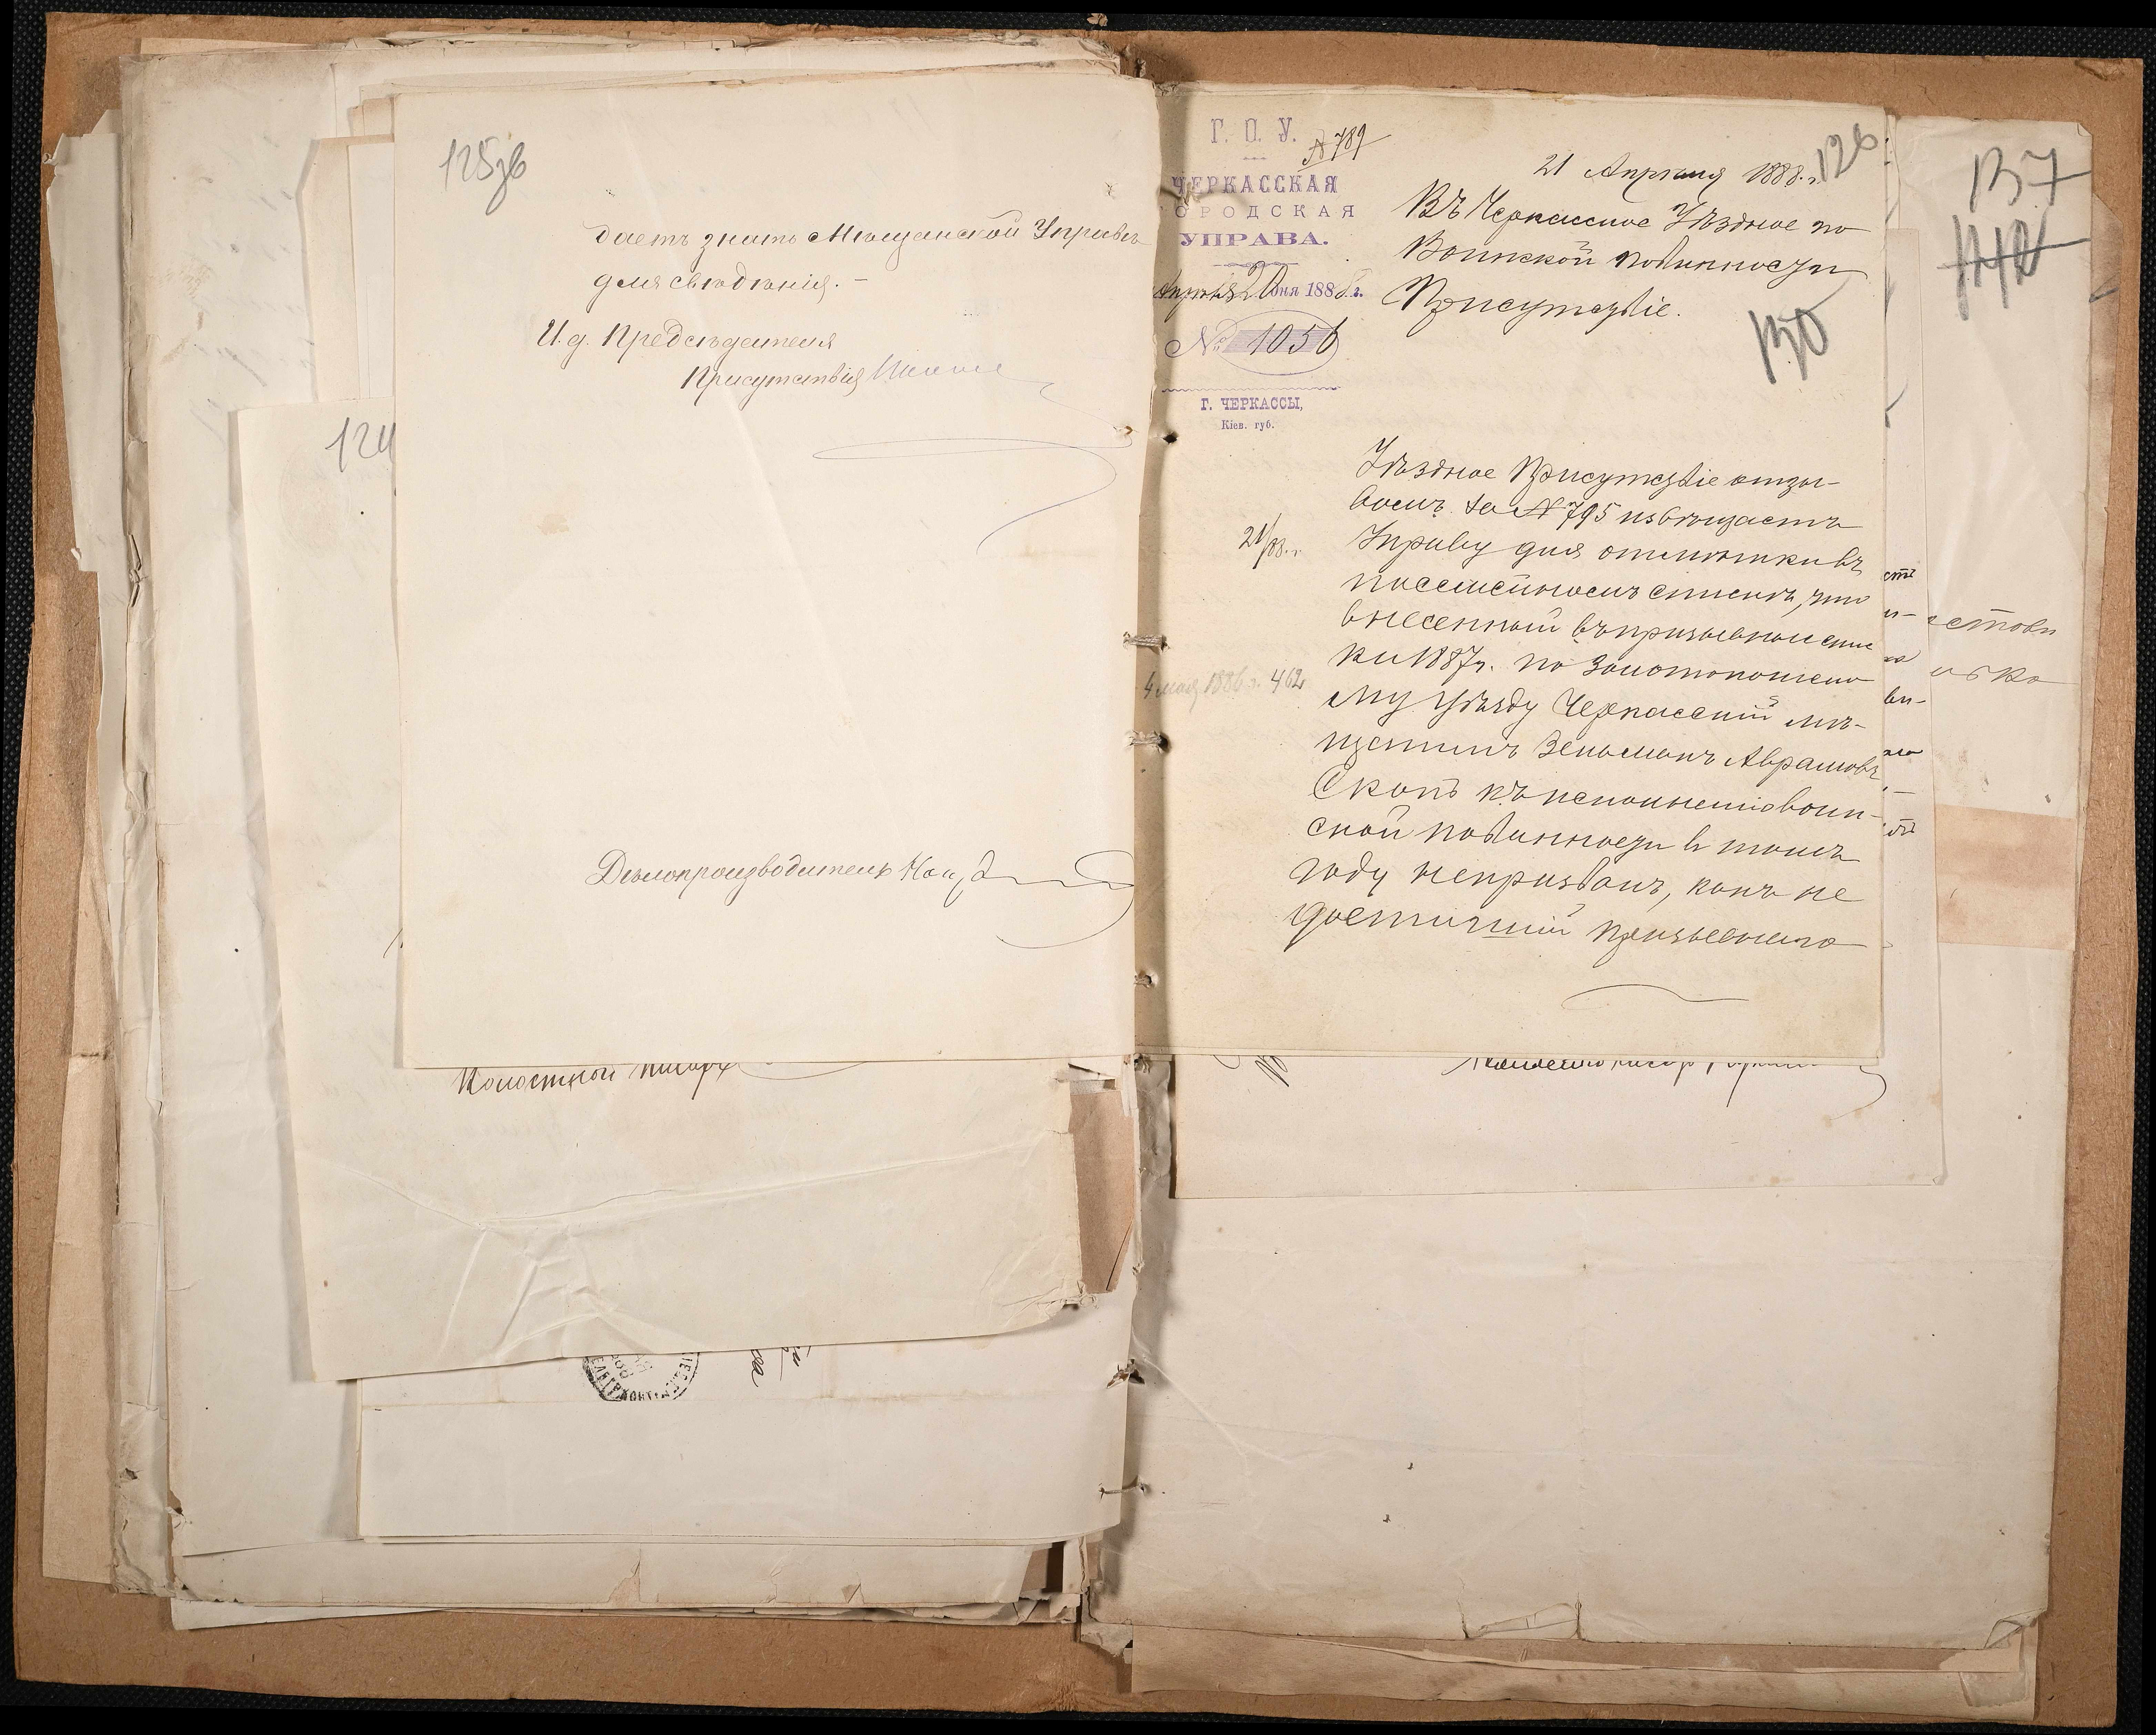 125 зв
даетъ знать Мѣщанской Управѣ
для свѣдѣнія.-
И. д. Предсѣдателя
Присутствія
Дѣлопроизводитель
124
Волостной писарь
Г. П. У.
№ 789
ЧЕРКАССКАЯ
ГОРОДСКАЯ
УПРАВА.
Апрѣля 20 дня 1888 г.
№ 1056
Г. ЧЕРКАССЫ,
Кіев. губ.
21 Апрѣля 1888. г.
126
Въ Черкасское Уѣздное по
Воинской повинности
Присутствіе.
130
Уѣздное Присутствіе отзы-
вомъ за № 795 извѣщаетъ
Управу для отмѣтки въ
посемейномъ спискѣ, что
внесенный въ призывные спис
ки 1887 г. по Золотоношско
му уѣзду Черкасский мѣ-
щанинъ Зельманъ Аврамовъ
Скопъ къ исполненію воин-
ской повинности в томъ
году непризванъ, какъ не
достигший призывнаго
21/88. г.
4 мая 1886 г. 462
137